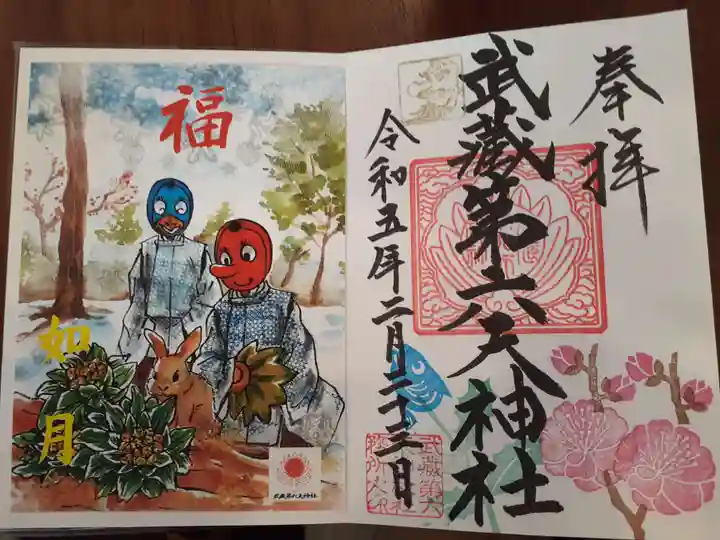 福
如月
武蔵第六天神社
奉拝
武蔵第六天神社
令和五年二月二十三日
武蔵第六